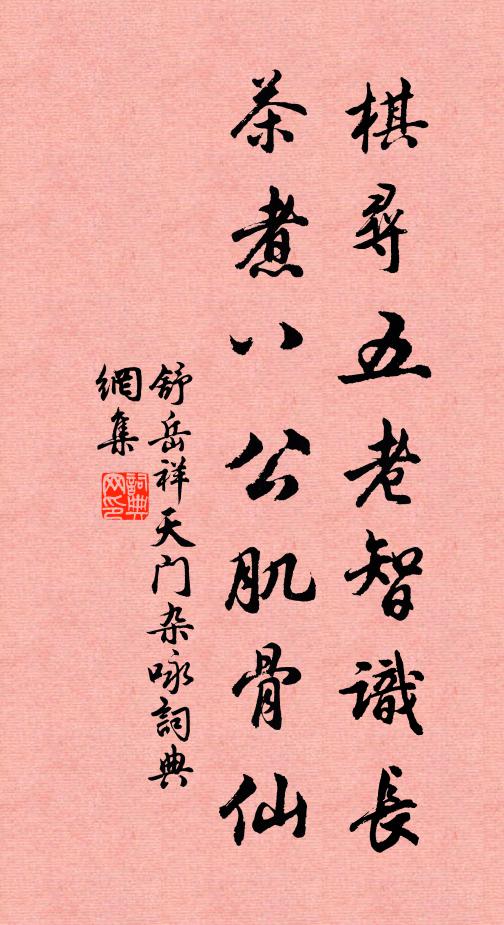 棋尋五老智識長
茶煮八公肌骨仙
舒岳祥天门杂咏詞典
網集
詞典
网印